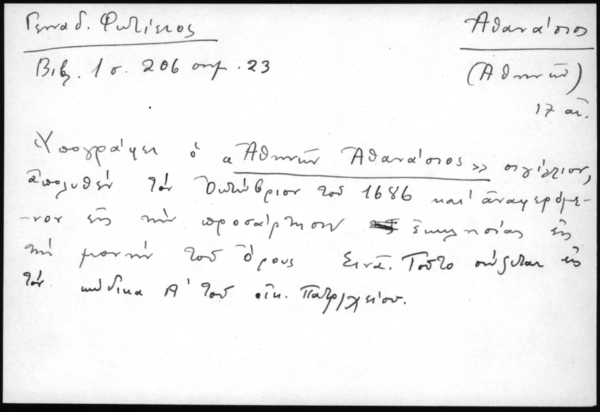 Γενναδ. Φωτίειος
Αθανάσιος
Βιβλ. 1 σ. 206 σημ. 23
(Αθηνῶν)
17 αἰ.
Υπογράφει ὁ «Αθηνῶν Αθανάσιος» σιγίλλιον,
ἀπολυθέν τόν Οκτώβριον τοῦ 1686 καί ἀναφερόμε-
-νον εἰς τήν προσάρτησιν ἐκκλησίας εἰς
τήν μονήν τοῦ Ὄρους Σινᾶ. Τοῦτο σώζεται εἰς
τόν κώδικα Α' τοῦ οἰκ. Πατρ/χείου.